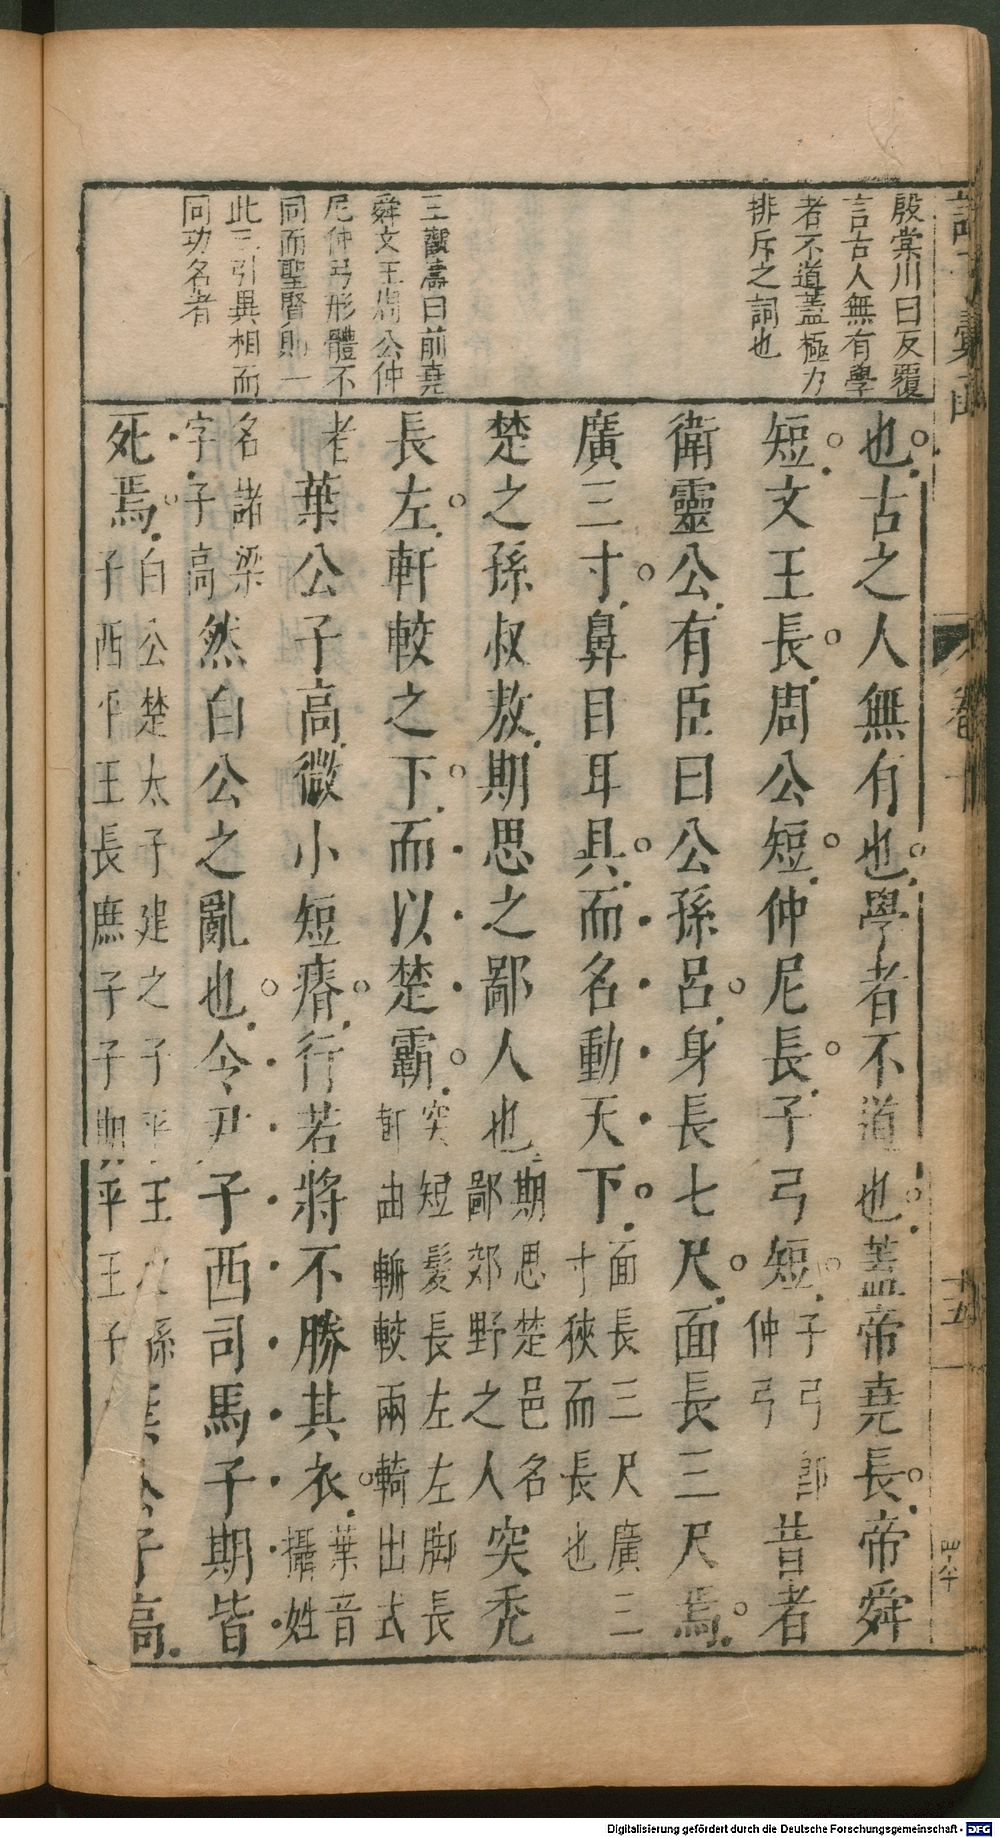 殷棠川曰反覆
言古人無有學
者不道蓋極力
排斥之詞也
王觀濤曰前堯
舜文王周公仲
尼仲弓形體不
同而聖賢則一
此三引異相而
同功名者
也古之人無有也學者不道也蓋帝堯長帝舜
短文王長周公短仲尼長子弓短子弓即仲弓昔者
衛靈公有臣曰公孫呂身長七尺面長三尺焉
廣三寸鼻目耳具而名動天下面長三尺廣三寸狹而長也
楚之孫叔敖期思之鄙人也期思楚邑名鄙郊野之人突禿
長左軒較之下而以楚霸突短髮長左左脚長軒曲輈較兩輢出式
者葉公子高微小短瘠行若將不勝其衣葉音攝姓
名諸梁字子高然白公之亂也令尹子西司馬子期皆
死焉白公楚太子建之子平王孫子西平王長庶子子期平王子葉公子高
卷
十五
四
Digitalisierung gefördert durch die Deutsche Forschungsgemeinschaft - DFG